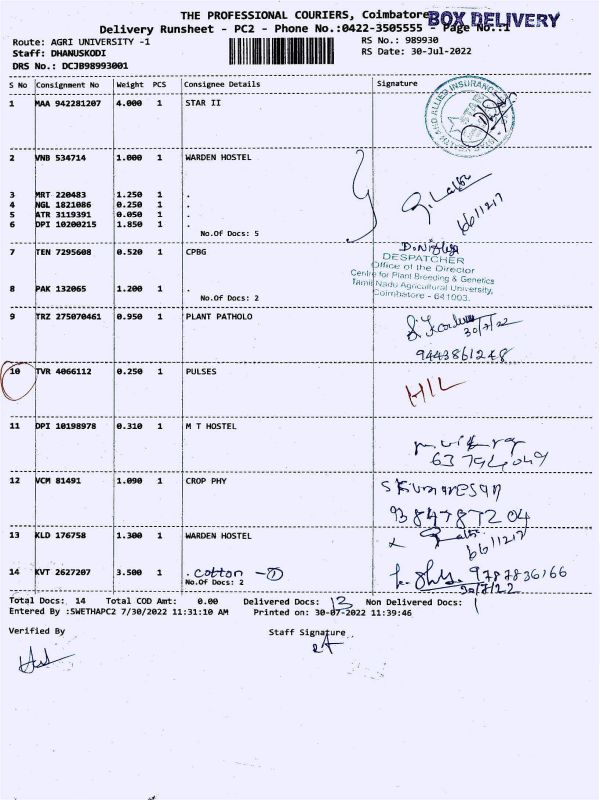 THE PROFESSIONAL COURIERS, Coimbatore BOX DELIVERY
Delivery Runsheet - PC2 - Phone No.:0422-3505555 - Page No.:1
Route: AGRI UNIVERSITY -1 RS No.: 989930
Staff: DHANUSKODI RS Date: 30-Jul-2022
DRS No.: DCJB98993001
S No Consignment No Weight PCS Consignee Details Signature
1 MAA 942281207 4.000 1 STAR II
2 VNB 534714 1.000 1 WARDEN HOSTEL
3 MRT 220483 1.250 1 .
4 NGL 1821086 0.250 1 .
5 ATR 3119391 0.050 1 .
6 DPI 10200215 1.850 1 .
No.Of Docs: 5
6611217
7 TEN 7295608 0.520 1 CPBG
DESPATCHER
Office of the Director
Centre for Plant Breeding & Genetics
Tamil Nadu Agricultural University,
Coimbatore - 641003.
8 PAK 132065 1.200 1 .
No.Of Docs: 2
9 TRZ 275070461 0.950 1 PLANT PATHOLO
30/7/22
9443861248
10 TVR 4066112 0.250 1 PULSES H/L
11 DPI 10198978 0.310 1 M T HOSTEL
12 VCM 81491 1.090 1 CROP PHY
9384787204
13 KLD 176758 1.300 1 WARDEN HOSTEL
6611217
14 KVT 2627207 3.500 1 . cotton - ① 9787836166
No.Of Docs: 2 30/7/22
Total Docs: 14 Total COD Amt: 0.00 Delivered Docs: 13 Non Delivered Docs: 1
Entered By :SWETHAPC2 7/30/2022 11:31:10 AM Printed on: 30-07-2022 11:39:46
Verified By Staff Signature